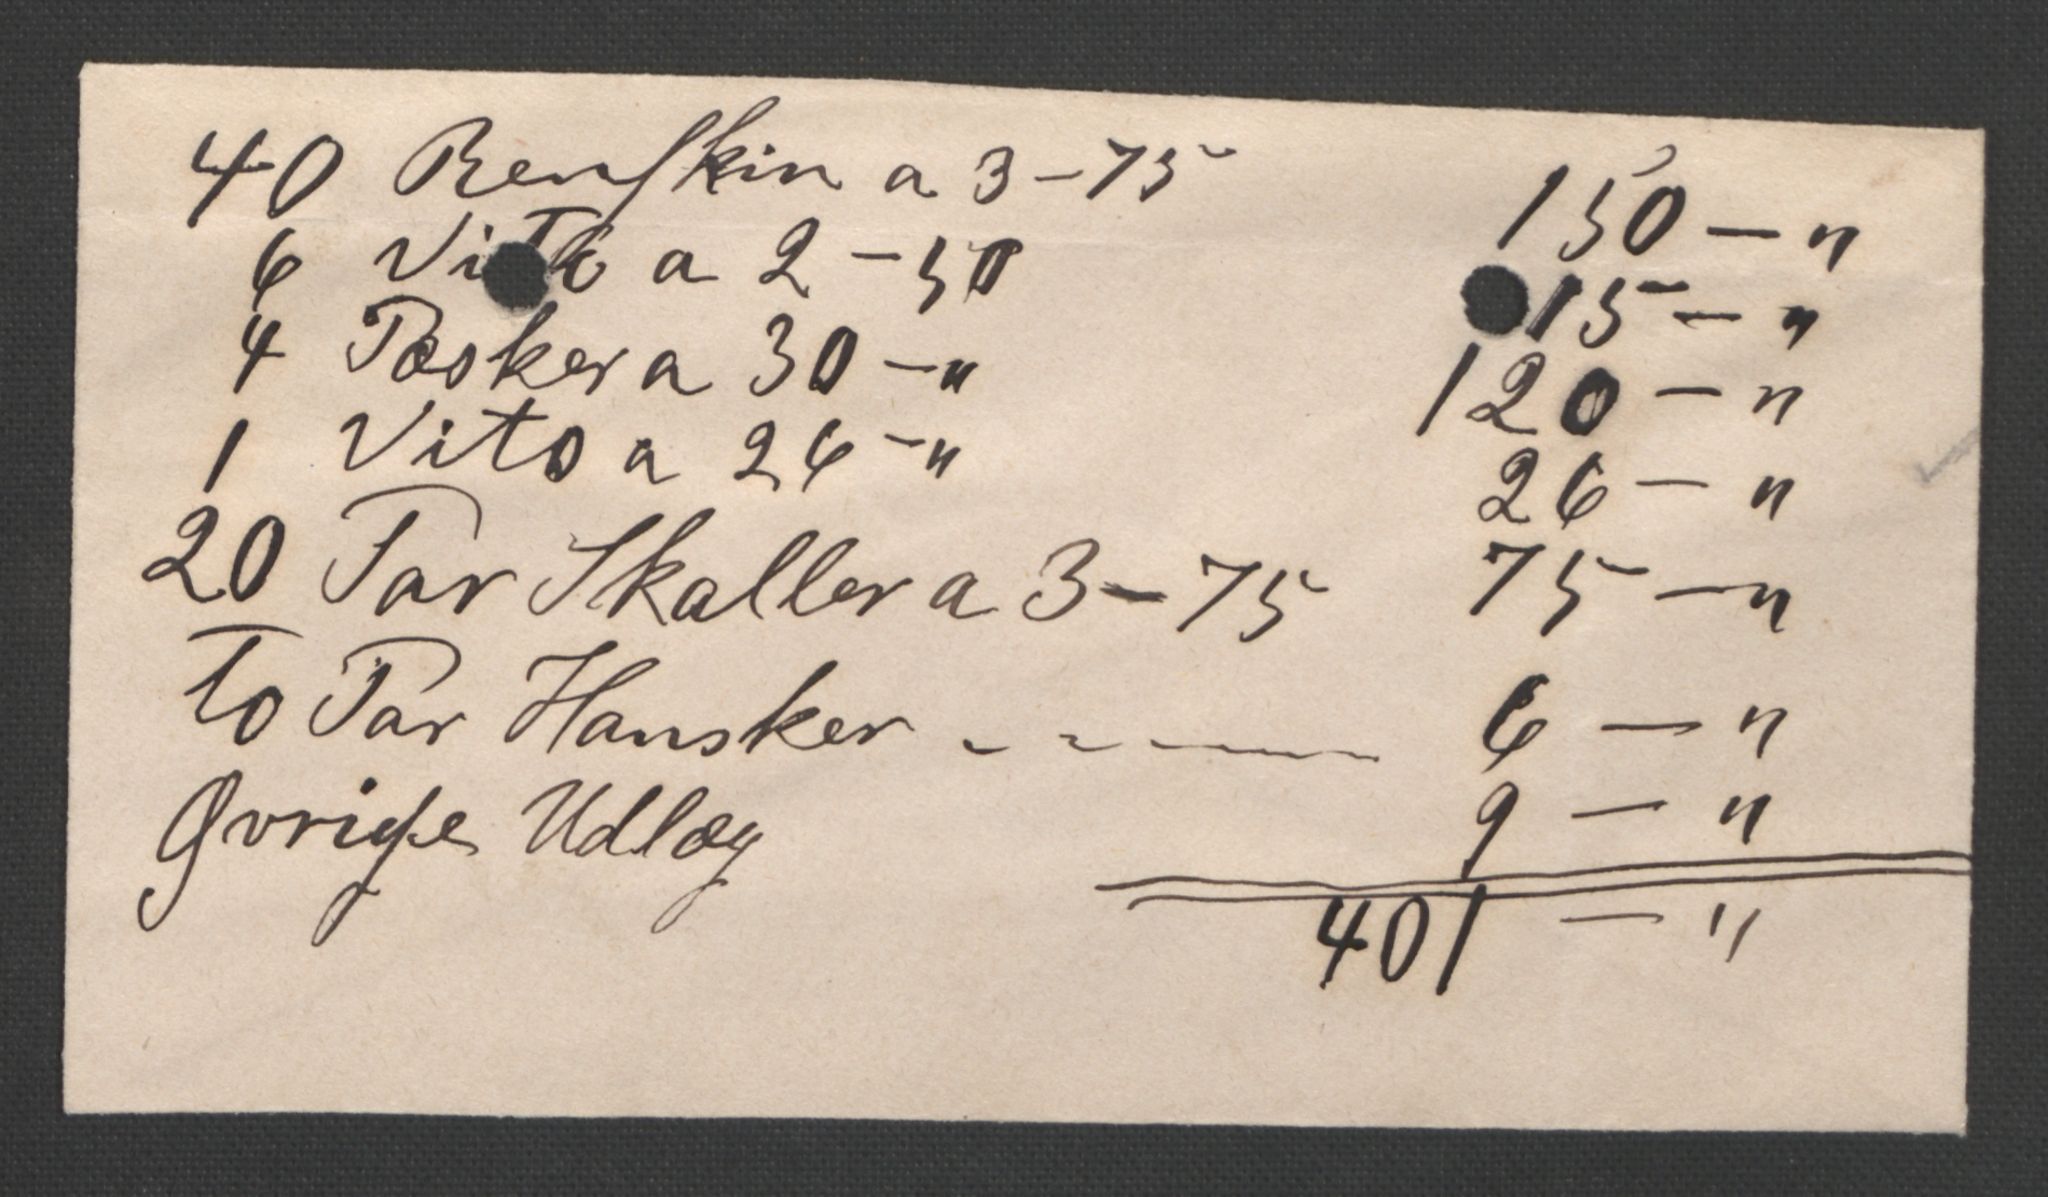 40 Renskin a 3-75 150-"
6 Vito a 2-50 15-"
4 Pæsker a 30-" 120-"
1 Vito a 26-" 26-"
20 Par Skaller a 3-75 75-"
To Par Hansker - - - 6-"
Øvrige Udlæg 9-"
401-"